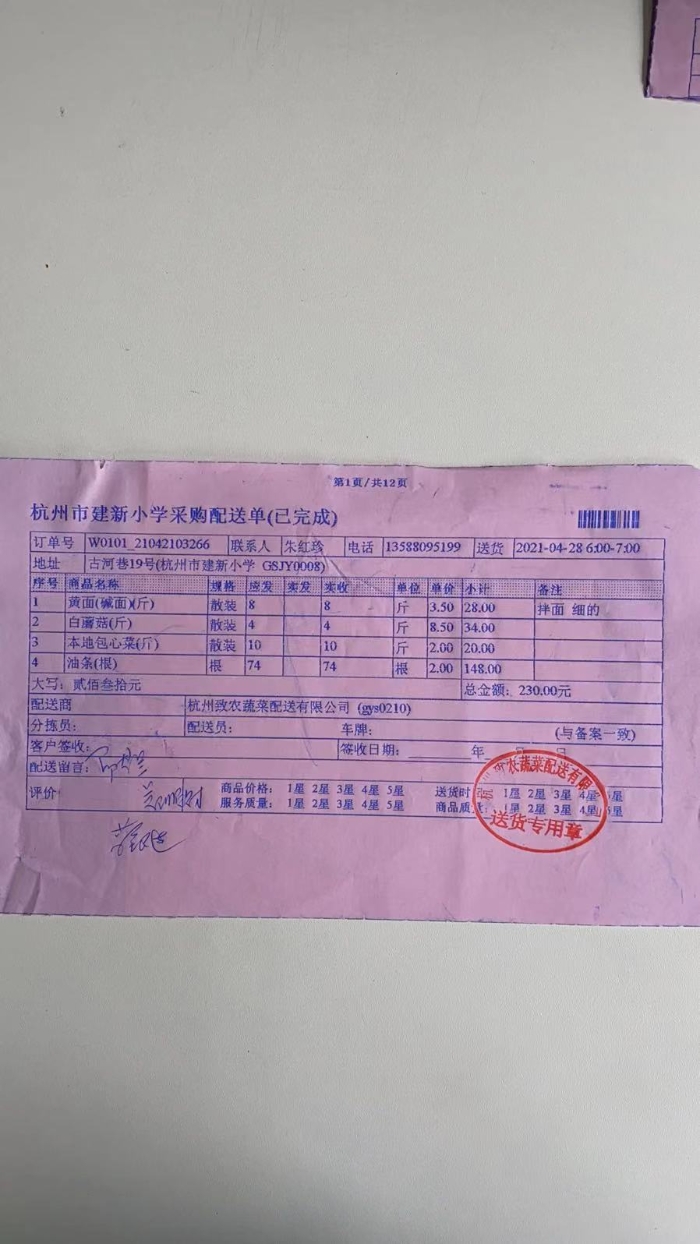 第1页/共12页
杭州市建新小学采购配送单(已完成)
订单号 W0101_21042103266 联系人 朱红珍 电话 13588095199 送货 2021-04-28 6:00-7:00
地址 古河巷19号(杭州市建新小学 GSJY0008)
序号 商品名称 规格 应发 实发 实收 单位 单价 小计 备注
1 黄面(碱面)(斤) 散装 8 8 斤 3.50 28.00 拌面 细的
2 白蘑菇(斤) 散装 4 4 斤 8.50 34.00
3 本地包心菜(斤) 散装 10 10 斤 2.00 20.00
4 油条(根) 根 74 74 根 2.00 148.00
大写: 贰佰叁拾元 总金额: 230.00元
配送商 杭州致农蔬菜配送有限公司 (gys0210)
分拣员: 配送员: 车牌: (与备案一致)
客户签收: 签收日期: 年 月 日
配送留言:
评价: 商品价格: 1星 2星 3星 4星 5星 送货时 1星 2星 3星 4星 5星
服务质量: 1星 2星 3星 4星 5星 商品质量: 1星 2星 3星 4星 5星
农蔬菜配送有限
送货专用章